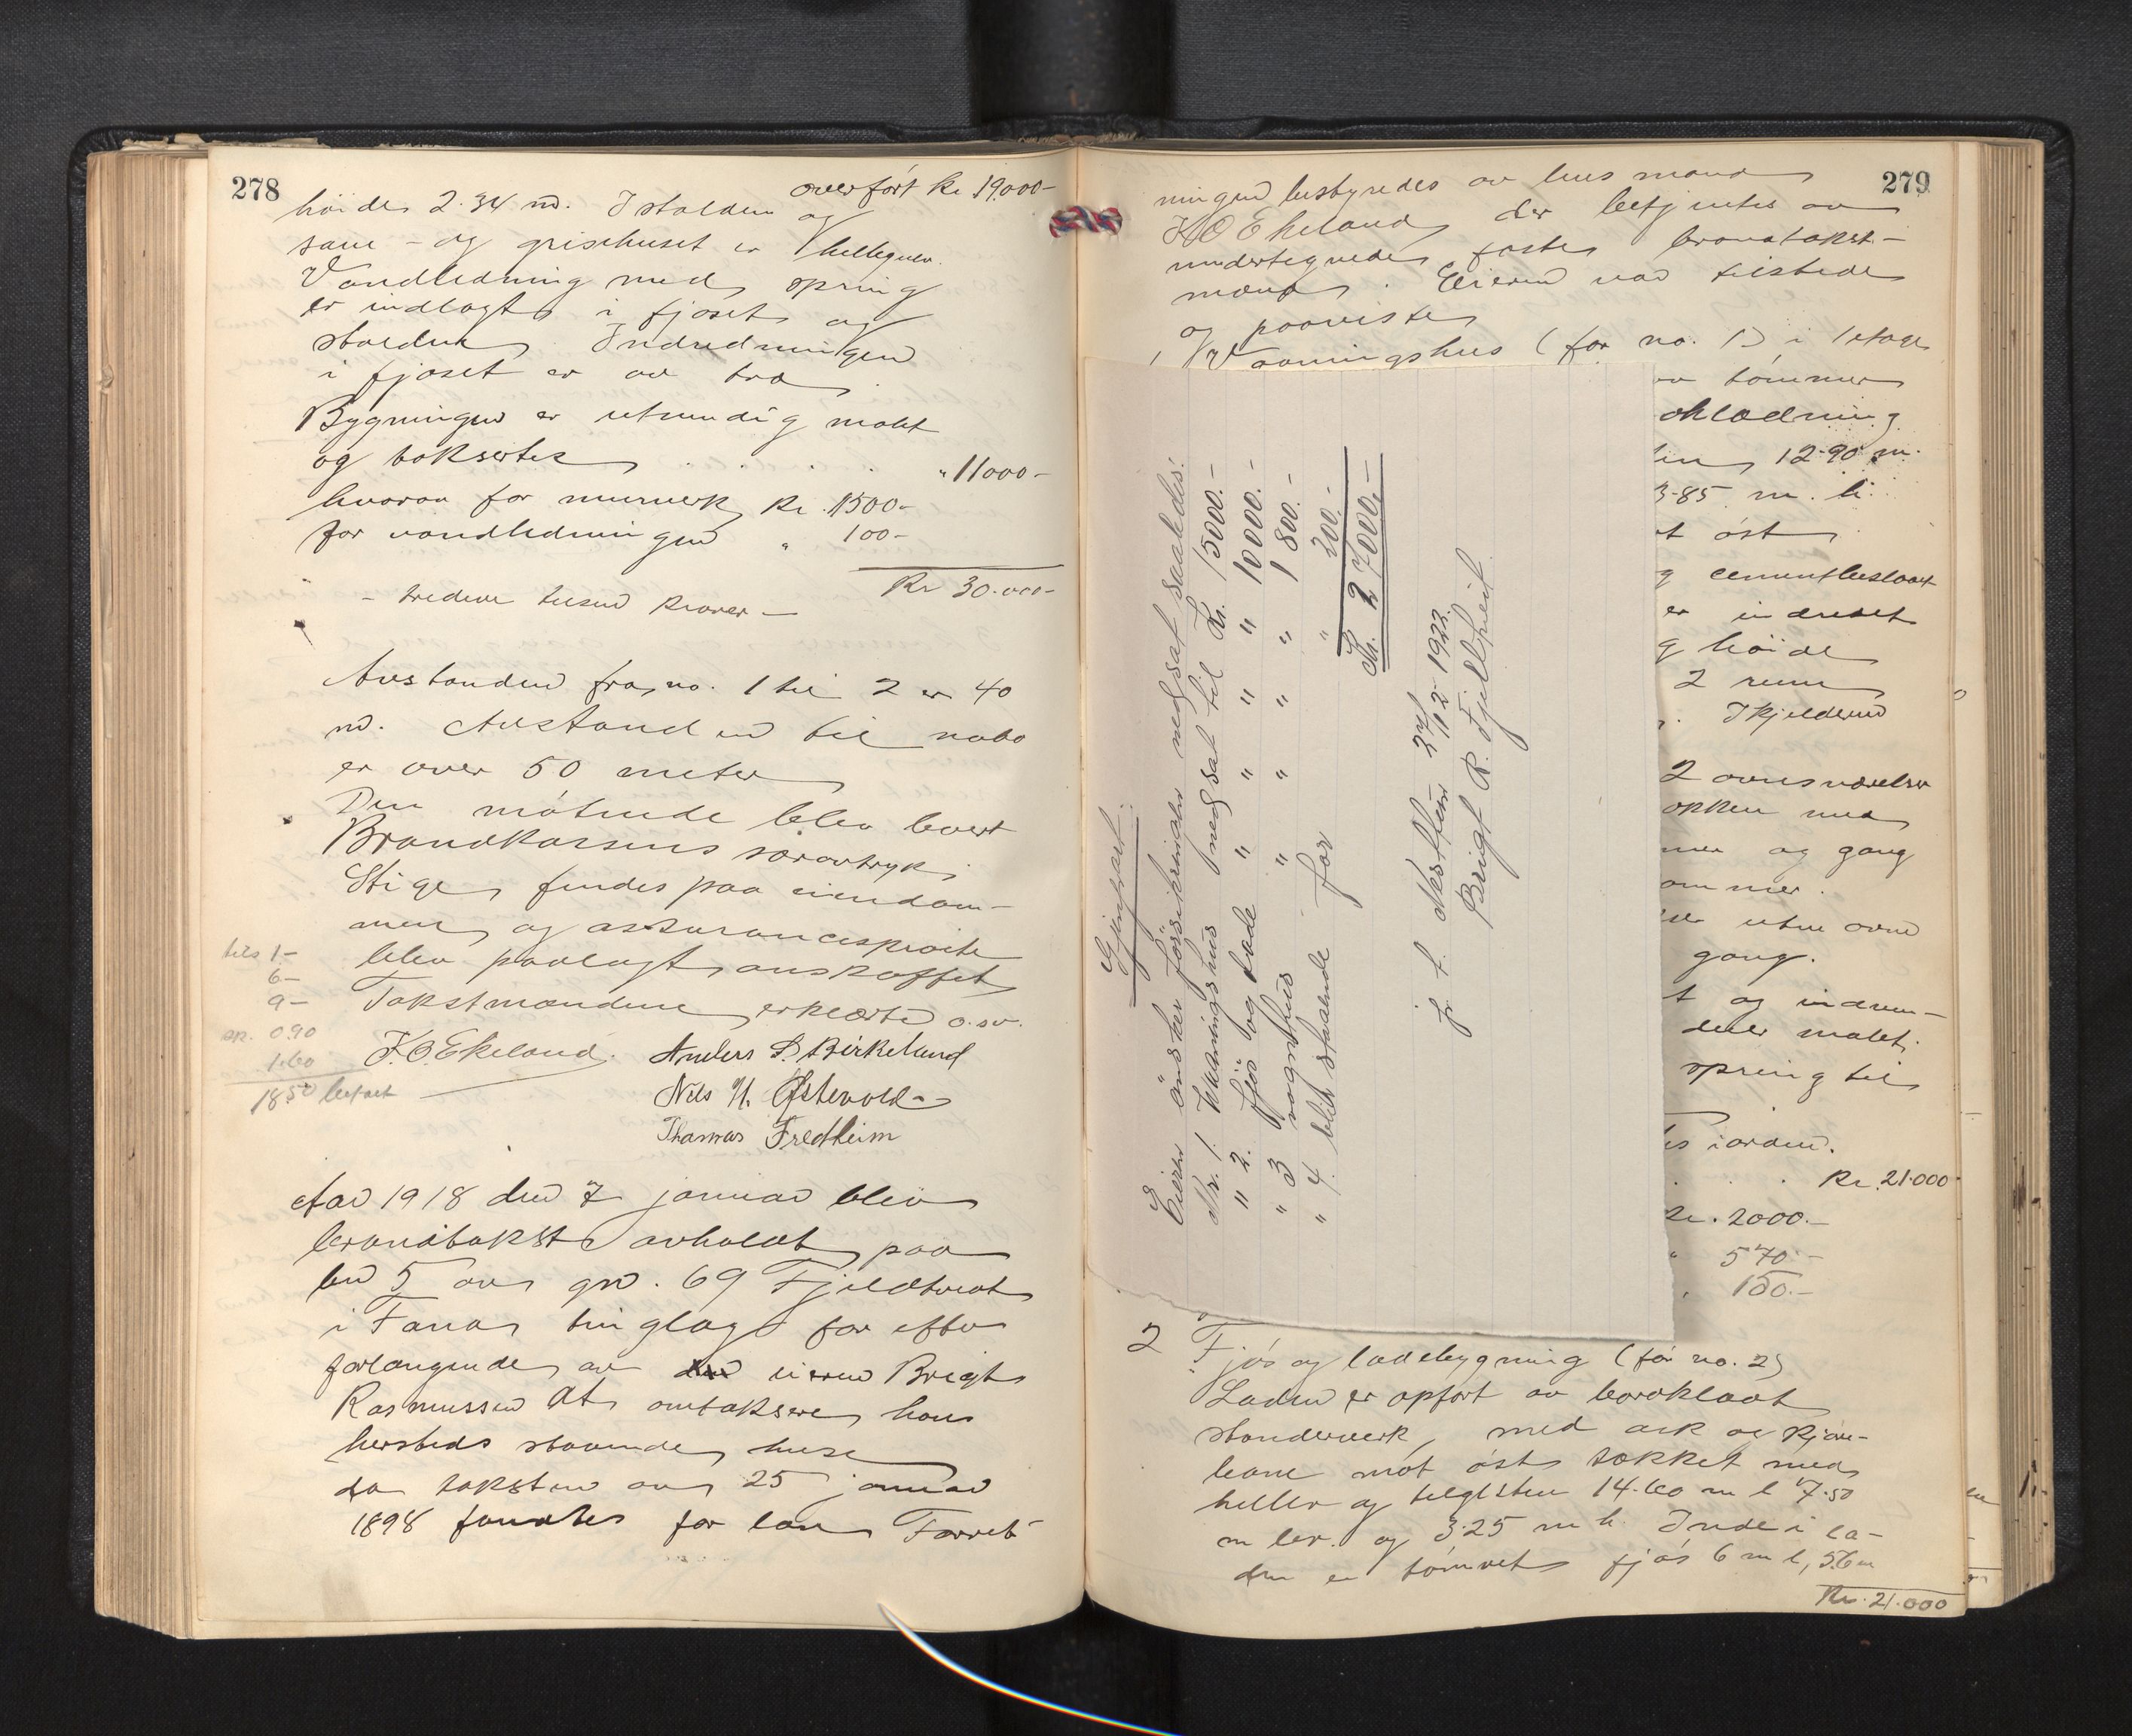 278
overført kr 19.000-
høide 2.34 m. I stalden og
saue- og grisehuset er hellegulv.
Vandledning med spring
er indlagt i fjøset og
stalden. Indredningen
i fjøset er av træ
Bygningen er utvendig malt
og takseres . . . " 11000-
hvorav for murverk kr. 1500-
for vandledningen " 100-
Kr 30.000-
- tredive tusend kroner -
Avstanden fra no. 1 til 2 er 40
m. Avstanden til nabo
er over 50 meter
Den møtende blev levert
Brandkassens særavtryk.
Stige findes paa eiendom-
men og assurancesprøite
blev paalagt anskaffet
Takstmændene erklærte o.sv.
1-
6-
9-
0.90
1.60
18.50 betalt
K.O Ekeland. Anders D. Birkeland
Nils N. Østevold
Thomas Fredheim
Aar 1918 den 7 januar blev
brandtakst avholdt paa
bn 5 av gn. 69 Fjeldtveit
i Fana tinglag for efter
forlangende av eieren Brigt
Rasmussen at omtaksere hans
hersteds staaende huse
da taksten av 25 januar
1898 fandtes for lav Forret-
279
ningen bestyredes av lens mand
K O Ekeland der betjentes av
undertegnede faste brandtakst-
mænd. Eieren var tilstede
og paaviste
1 Vaaningshus (før no. 1) i 1 etage
tømmer
12.90 m.
3.85 m. h.
øst
cementbeslaat
er indredet
høide
2 rum
I kjelderen
2 
med
og gang
gang.
og indven-
malet.
spring til
iorden.
Kr. 21.000
2000.-
" 570.-
" 150.-
Gjenpart.
Eieren ønsker forsikringen nedsat saaledes:
Nr. 1. Vaaningshus nedsat til Kr. 15000.-
" 2. fjøs og lade " " " " 10000.-
" 3 vognhus " " " " 1800.-
" 4. blir staaende for " 200.-
Kr. 27000.-
p. t. Nesttun 27/12 1922.
Brigt R. Fjeldtveit.
2 Fjøs og ladebygning (før no. 2)
Laden er opført av bordklædt
stenderverk, med ark og kjøre-
bane mot øst tækket med
heller og teglsten 14.60 m l 7.50
m br. og 3.25 m h. Inde i la-
den er tømret fjøs 6 m l, 5.6 m
Kr. 21.000